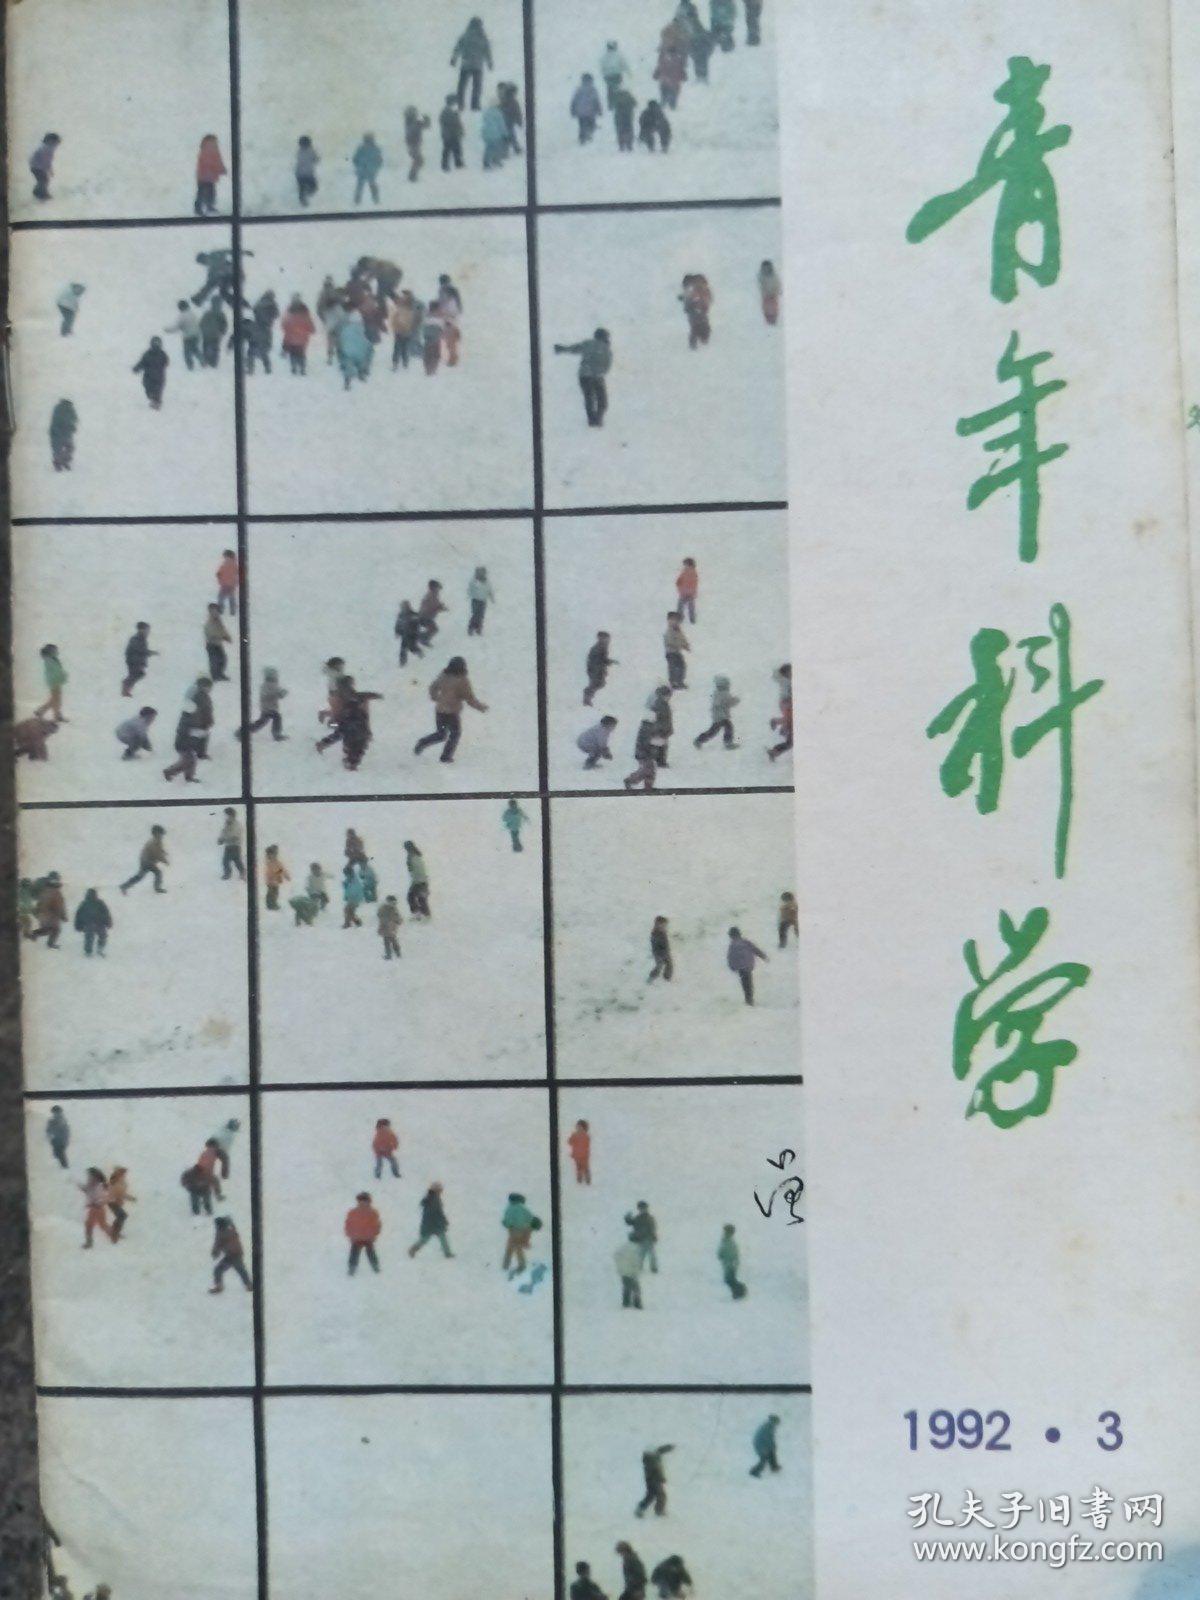 青年科学
1992·3
孔夫子旧书网
www.kongfz.com